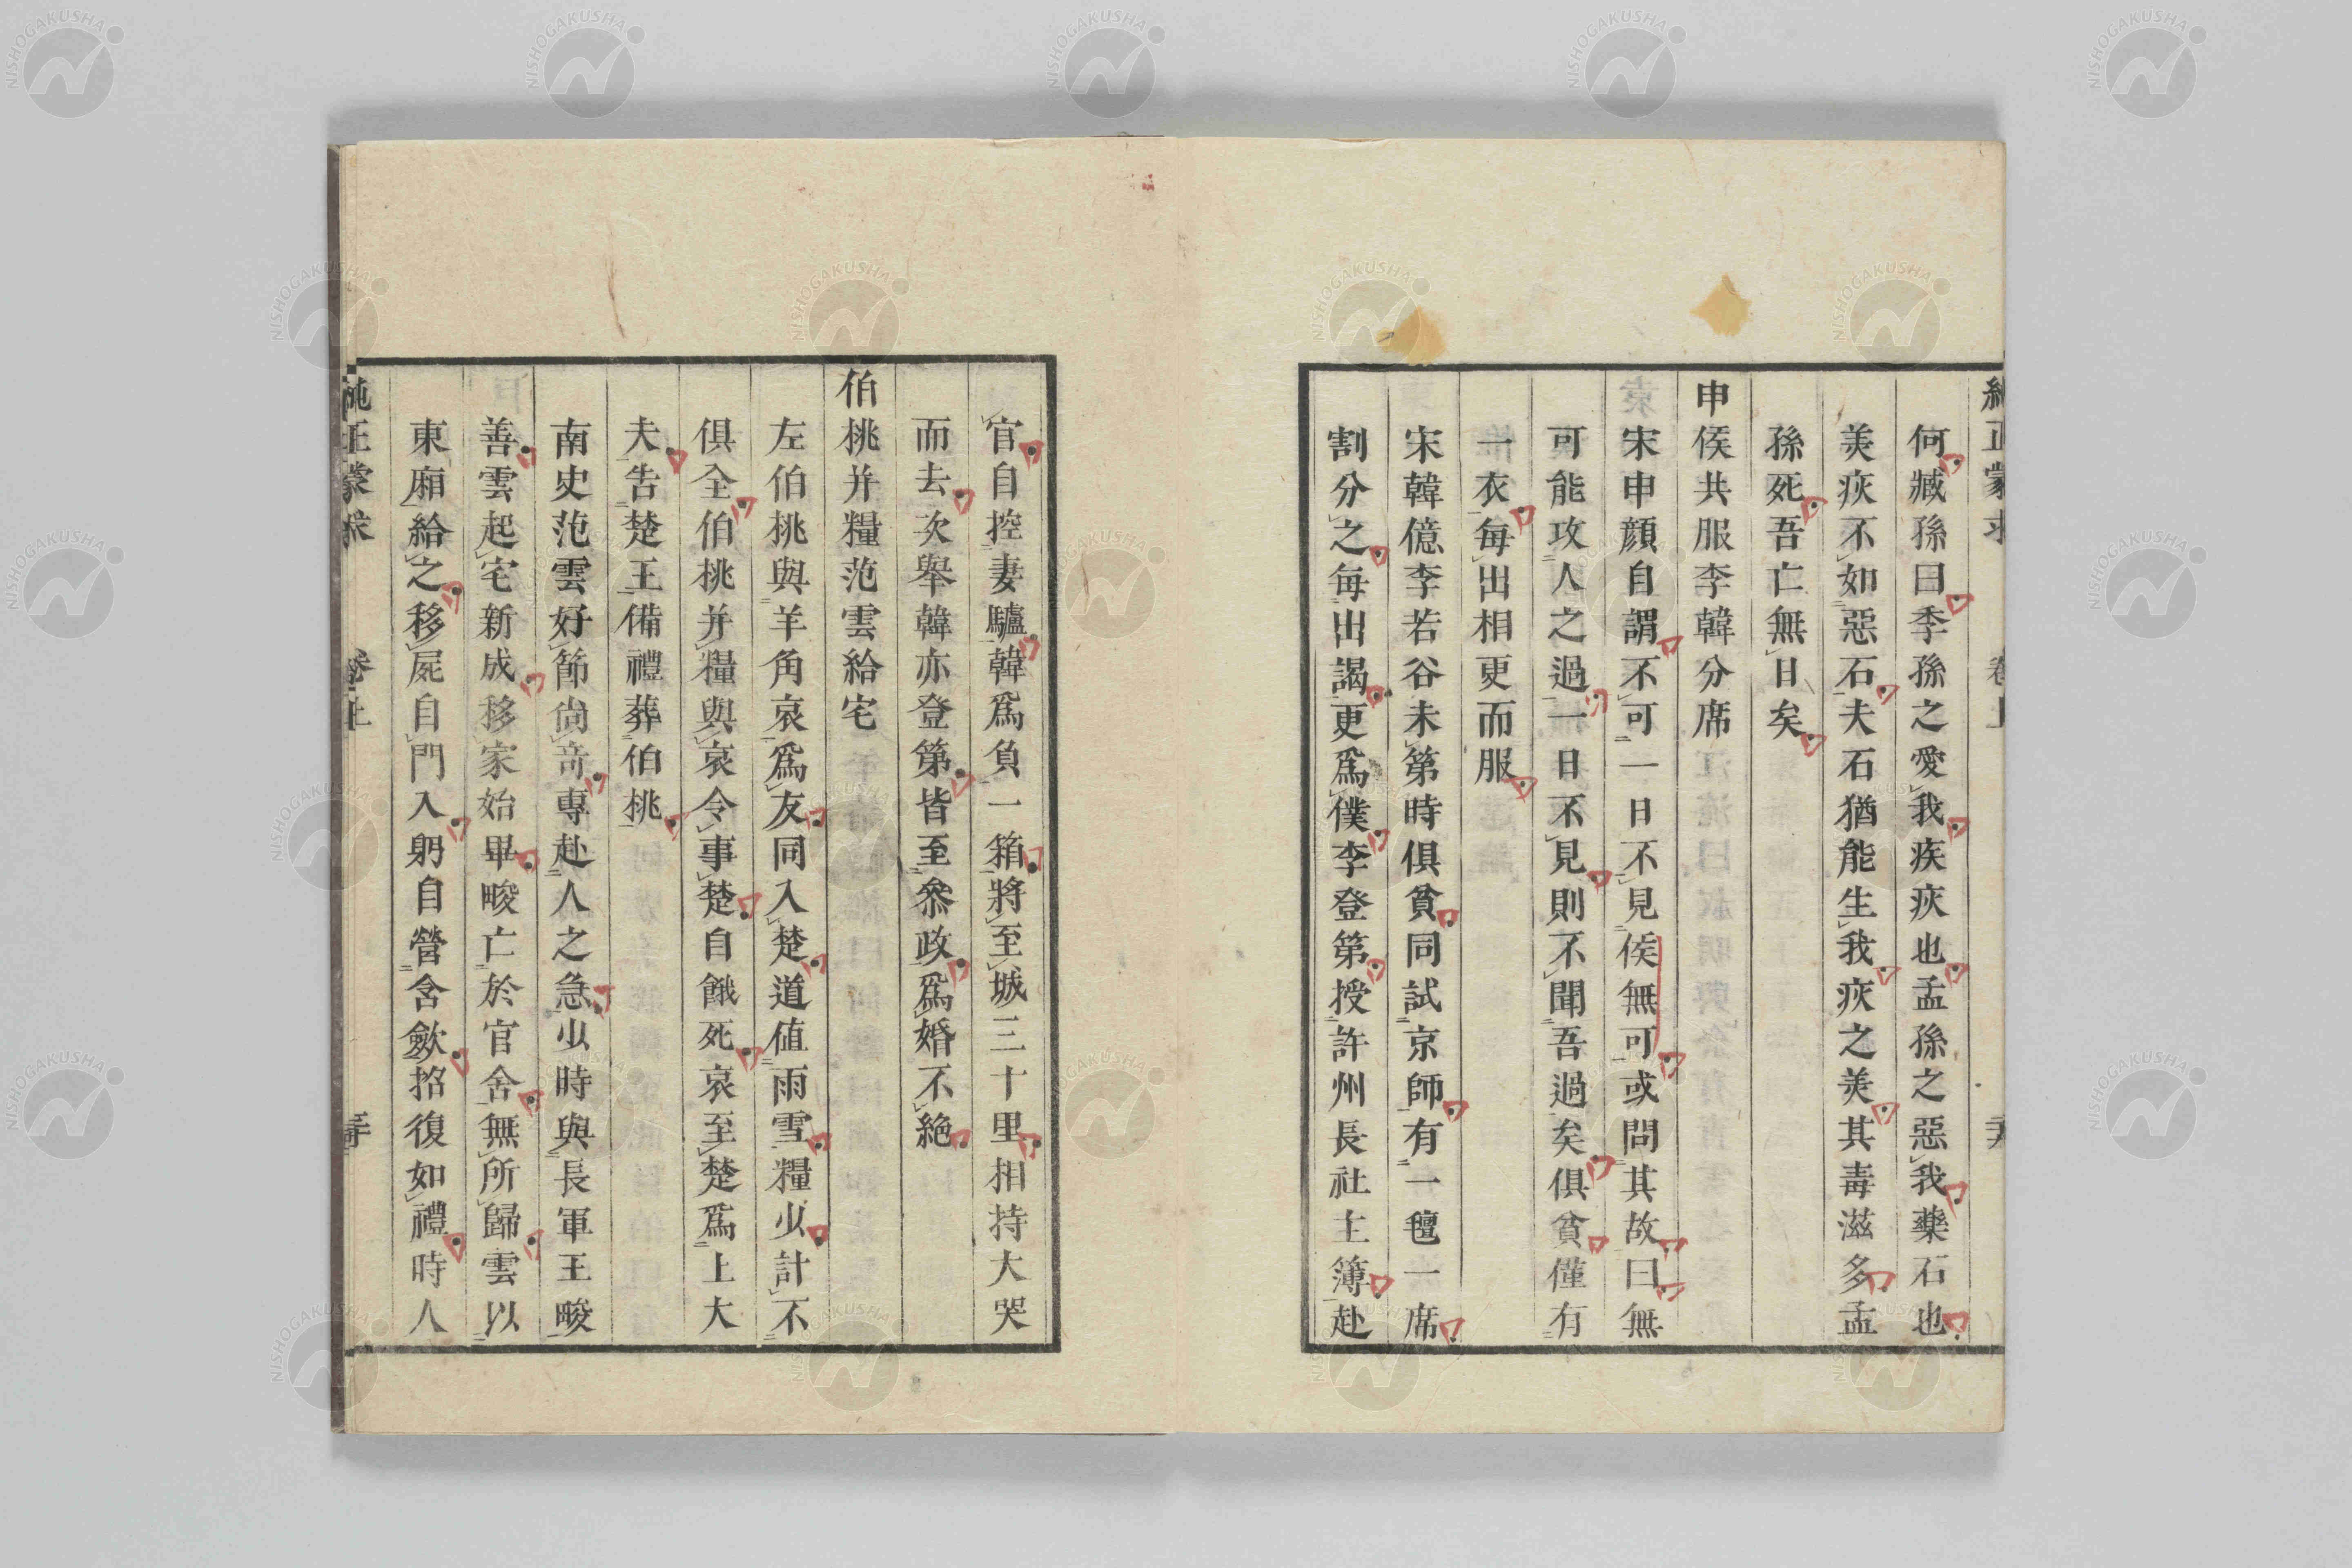 純正蒙求 卷上
何臧孫曰季孫之愛我疾疢也孟孫之惡我藥石也
美疢不如惡石夫石猶能生我疢之美其毒滋多孟
孫死吾亡無日矣
申侯共服李韓分席
宋申顔自謂不可一日不見侯無可或問其故曰無
可能攻人之過一日不見則不聞吾過矣俱貧僅有
一衣每出相更而服
宋韓億李若谷未第時俱貧同試京師有一氊一席
割分之每出謁更爲僕李登第授許州長社主簿赴
官自控妻驢韓爲負一箱將至城三十里相持大哭
而去次舉韓亦登第皆至叅政爲婚不絶
伯桃并糧范雲給宅
左伯桃與羊角哀爲友同入楚道値雨雪糧少計不
俱全伯桃并糧與哀令事楚自餓死哀至楚爲上大
夫告楚王備禮葬伯桃
南史范雲好節尙竒專赴人之急少時與長軍王畯
善雲起宅新成移家始畢畯亡於官舍無所歸雲以
東廂給之移屍自門入躬自營含歛招復如禮時人
純正蒙求 卷上
NISHOGAKUSHA